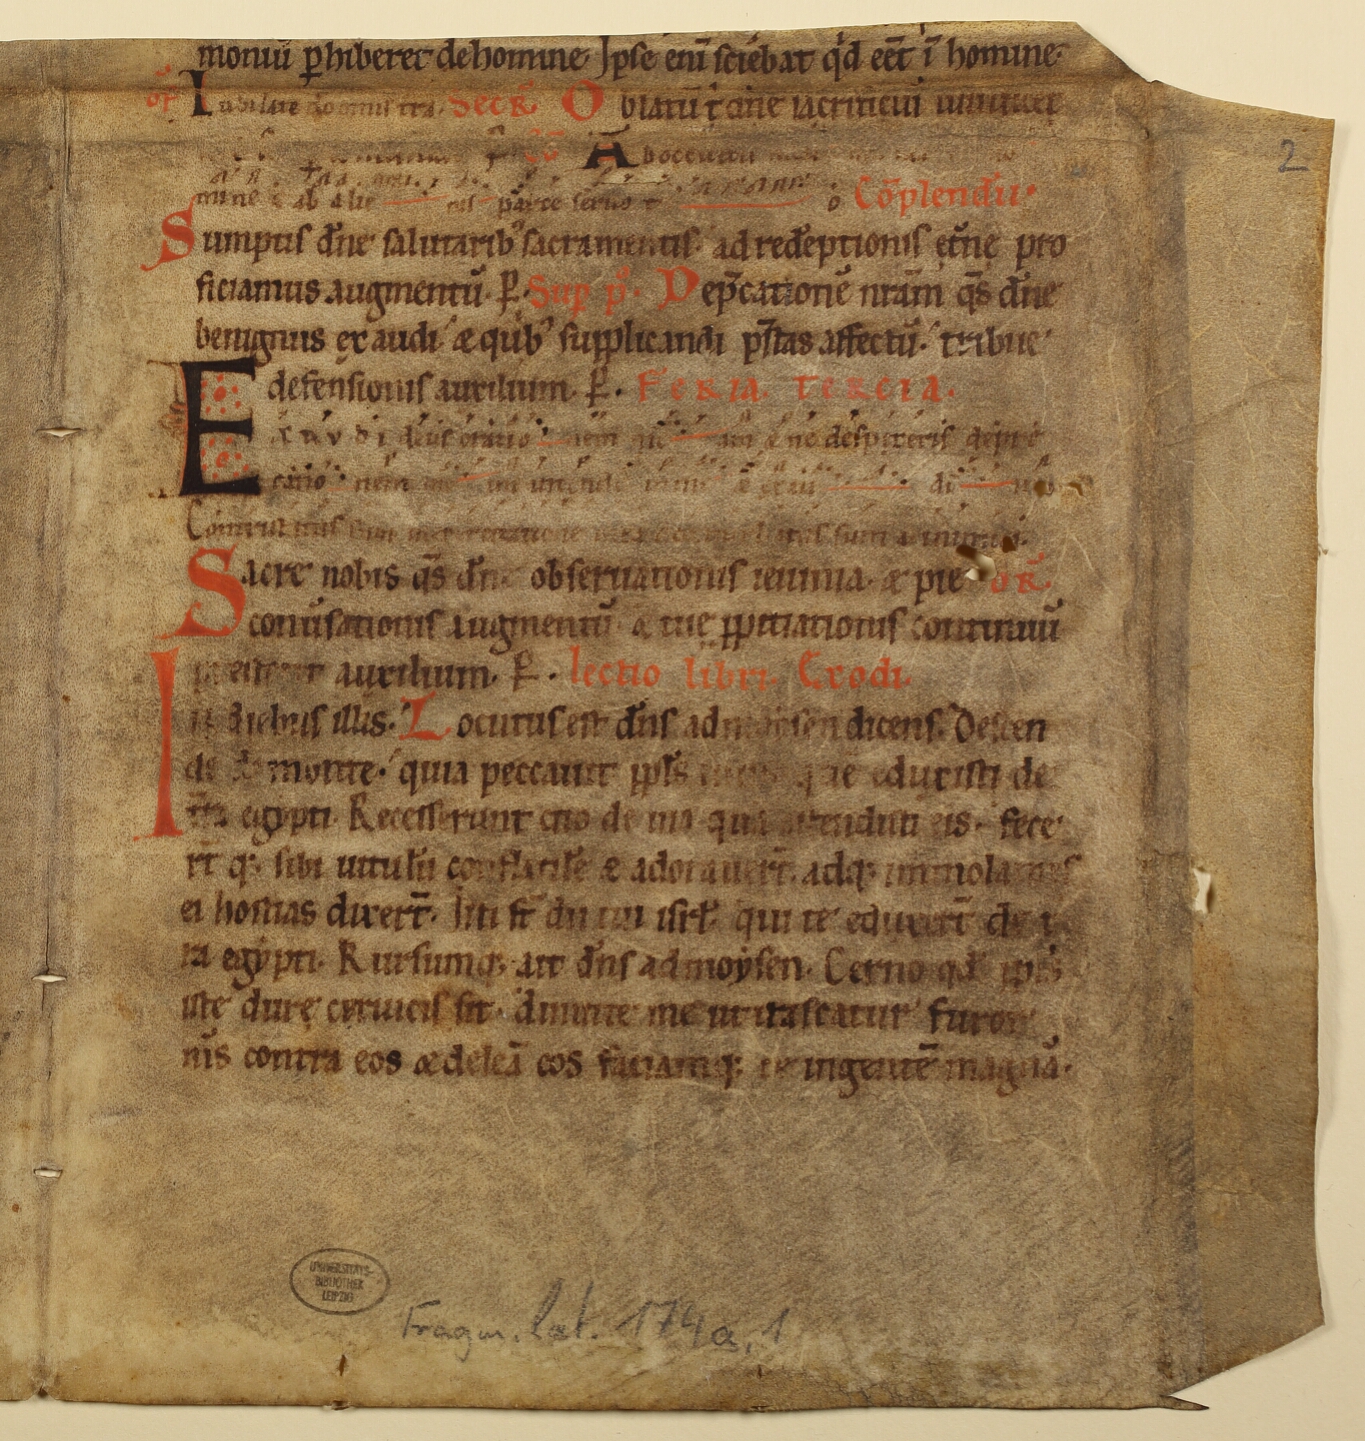 moniū ꝑhiberet de homine. Ipse eni͛ sciebat qd eēt ī homine.
of Iubilate domini tra. Secř Oblatū t͛ dn̄e sacrificiū
2
Ab occultis
mine & ab alie nis parce seruo t o Cōplendū.
Sumptis dn̄e salutarib; sacramentis. ad redēptionis etn̄e pro
ficiamus augmentū. ꝑ. Sup pͦ. Dep̄cationē nr̄am qs̄ dn̄e
benignus exaudi. & quib; supplicandi p̄stas affectū. tribue
defensionis auxilium. ꝑ. FERIA TERCIA.
Exaudi deus oratio nem me am & ne despexeris depre
catio nem me am intende mihi & exau di me
Contristatus sum
Sacre nobis qs̄ dn̄e obseruationis ieiunia. & pie oř
conūsationis augmentū. & tuę ꝓpitiationis continuū
prestent auxilium. ꝑ. lectio libri Exodi.
In diebus illis. Locutus est dn̄s ad moysen dicens. Descen
de de monte. quia peccauit ppl̄s tuus que eduxisti de
tr̄a egypti. Recesserunt cito de uia quā ostendisti eis. fece
rt̄ q; sibi uitulū conflatile & adorauerт̄. adq; immolantes
ei hostias dixert̄. Isti st̄ dii tui isrl̄. qui te eduxert̄ de t͛
ra egypti. Rursumq; ait dn̄s ad moysen. Cerno qd ppl̄s
iste dure ceruicis sit. dimitte me ut irascatur furor
m̄s contra eos & deleā eos faciamq; te in gentē magnā.
UNIVERSITÄTS-
BIBLIOTHEK
LEIPZIG
Fragm. lat. 174a, 1